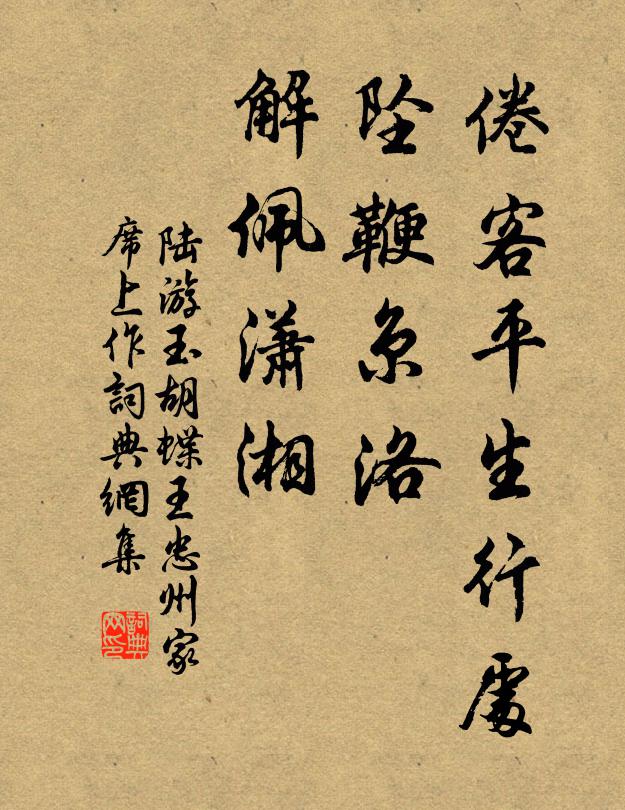 倦客平生行處
坠鞭京洛
解佩瀟湘
陆游玉胡蝶王忠州家
席上作詞典網集
詞典网印